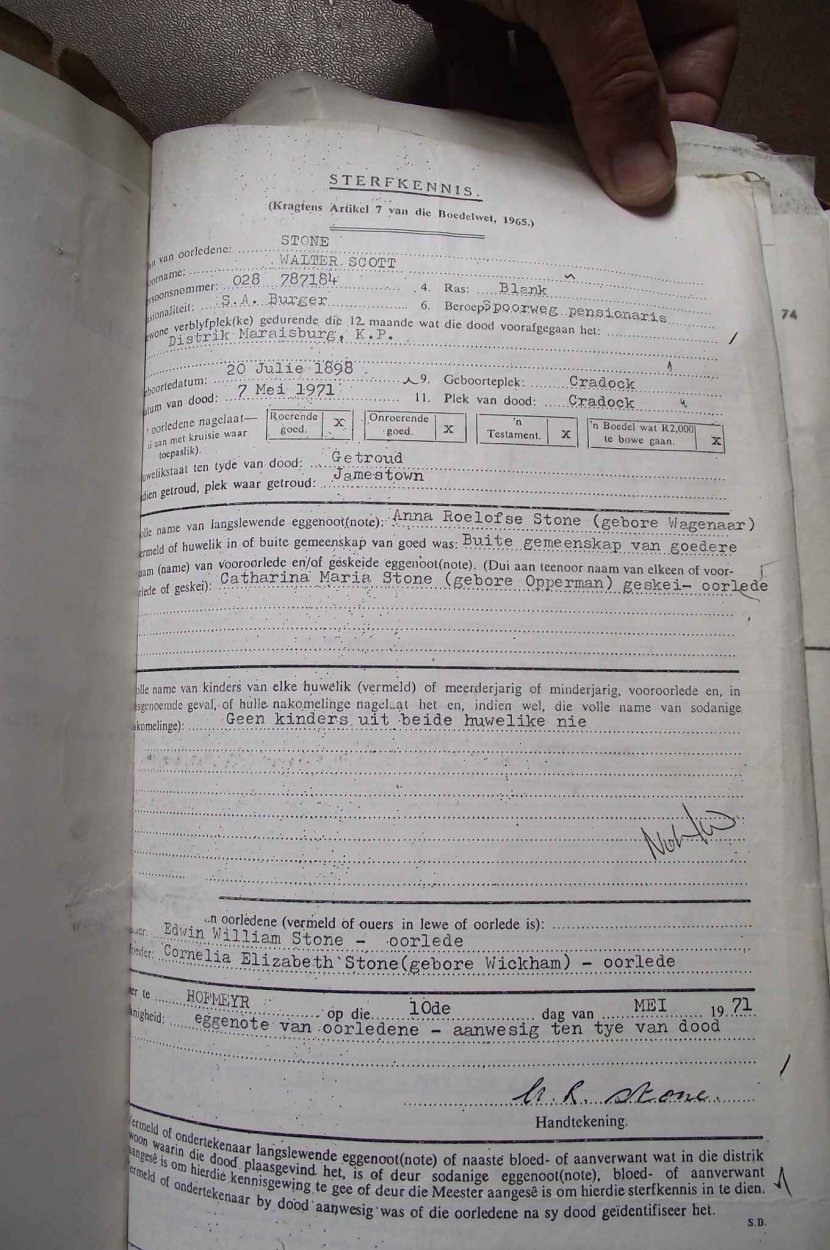 STERFKENNIS.
(Kragtens Artikel 7 van die Boedelwet, 1965.)
van oorledene: STONE
orname: WALTER SCOTT
rsoonsnommer: 028 787184 4. Ras: Blank
sionaliteit: S.A. Burger 6. Beroep: Spoorweg pensionaris
ewone verblyfplek(ke) gedurende die 12 maande wat die dood voorafgegaan het:
Distrik Maraisburg, K.P.
eboortedatum: 20 Julie 1898 9. Geboorteplek: Cradock
atum van dood: 7 Mei 1971 11. Plek van dood: Cradock
oorledene nagelaat— Roerende goed. X Onroerende goed. X 'n Testament. X 'n Boedel wat R2,000 te bowe gaan. X
i aan met kruisie waar
toepaslik).
uwelikstaat ten tyde van dood: Getroud
dien getroud, plek waar getroud: Jamestown
olle name van langslewende eggenoot(note): Anna Roelofse Stone (gebore Wagenaar)
ermeld of huwelik in of buite gemeenskap van goed was: Buite gemeenskap van goedere
aam (name) van vooroorlede en/of geskeide eggenoot(note). (Dui aan teenoor naam van elkeen of voor-
rlede of geskei): Catharina Maria Stone (gebore Opperman) geskei- oorlede
olle name van kinders van elke huwelik (vermeld) of meerderjarig of minderjarig, vooroorlede en, in
asgenoemde geval, of hulle nakomelinge nagelaat het en, indien wel, die volle name van sodanige
komelinge): Geen kinders uit beide huwelike nie
n oorledene (vermeld of ouers in lewe of oorlede is):
Edwin William Stone - oorlede
oeder: Cornelia Elizabeth Stone(gebore Wickham) - oorlede
er te HOFMEYR op die 10de dag van MEI 1971
anigheid: eggenote van oorledene - aanwesig ten tye van dood
A. R. Stone.
Handtekening.
ermeld of ondertekenaar langslewende eggenoot(note) of naaste bloed- of aanverwant wat in die distrik
woon waarin die dood plaasgevind het, is of deur sodanige eggenoot(note), bloed- of aanverwant
aangesê is om hierdie kennisgewing te gee of deur die Meester aangesê is om hierdie sterfkennis in te dien.
ermeld of ondertekenaar by dood aanwesig was of die oorledene na sy dood geïdentifiseer het.
S.D.
74